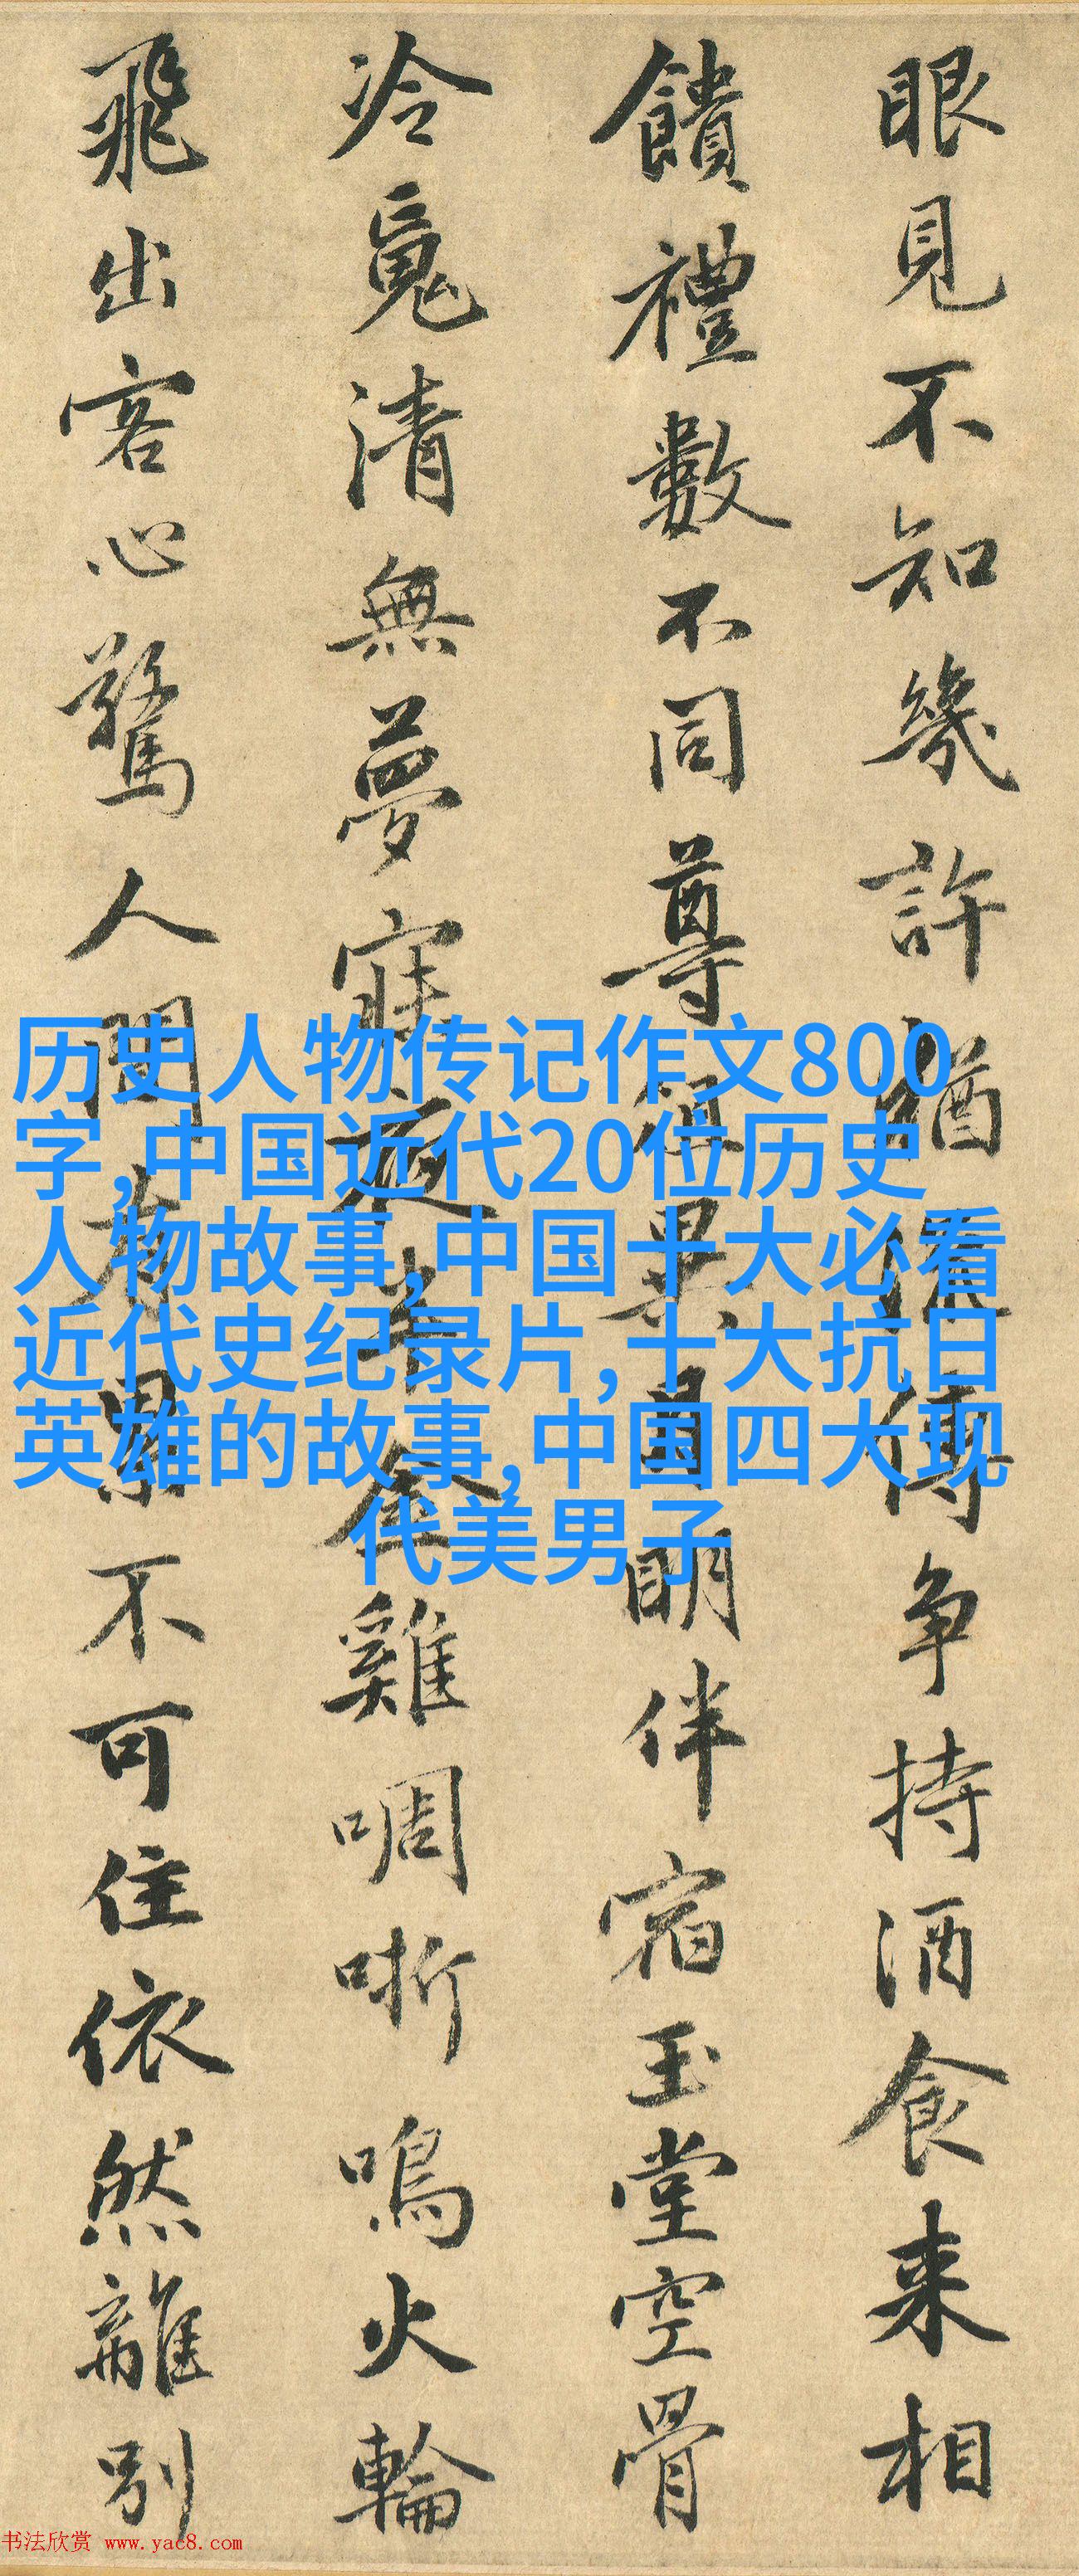 眼見不知幾許猶流傳争持酒食来相
饋禮數不同尊俎異月明伴宿玉堂空骨
冷魂清無夢寐夜半金雞啁哳鳴火輪
飛出客心驚人間有累不可住依然離別
历史人物传记作文800
字,中国近代20位历史
人物故事,中国十大必看
近代史纪录片,十大抗日
英雄的故事,中国四大现
代美男子
书法欣赏 www.yac8.com